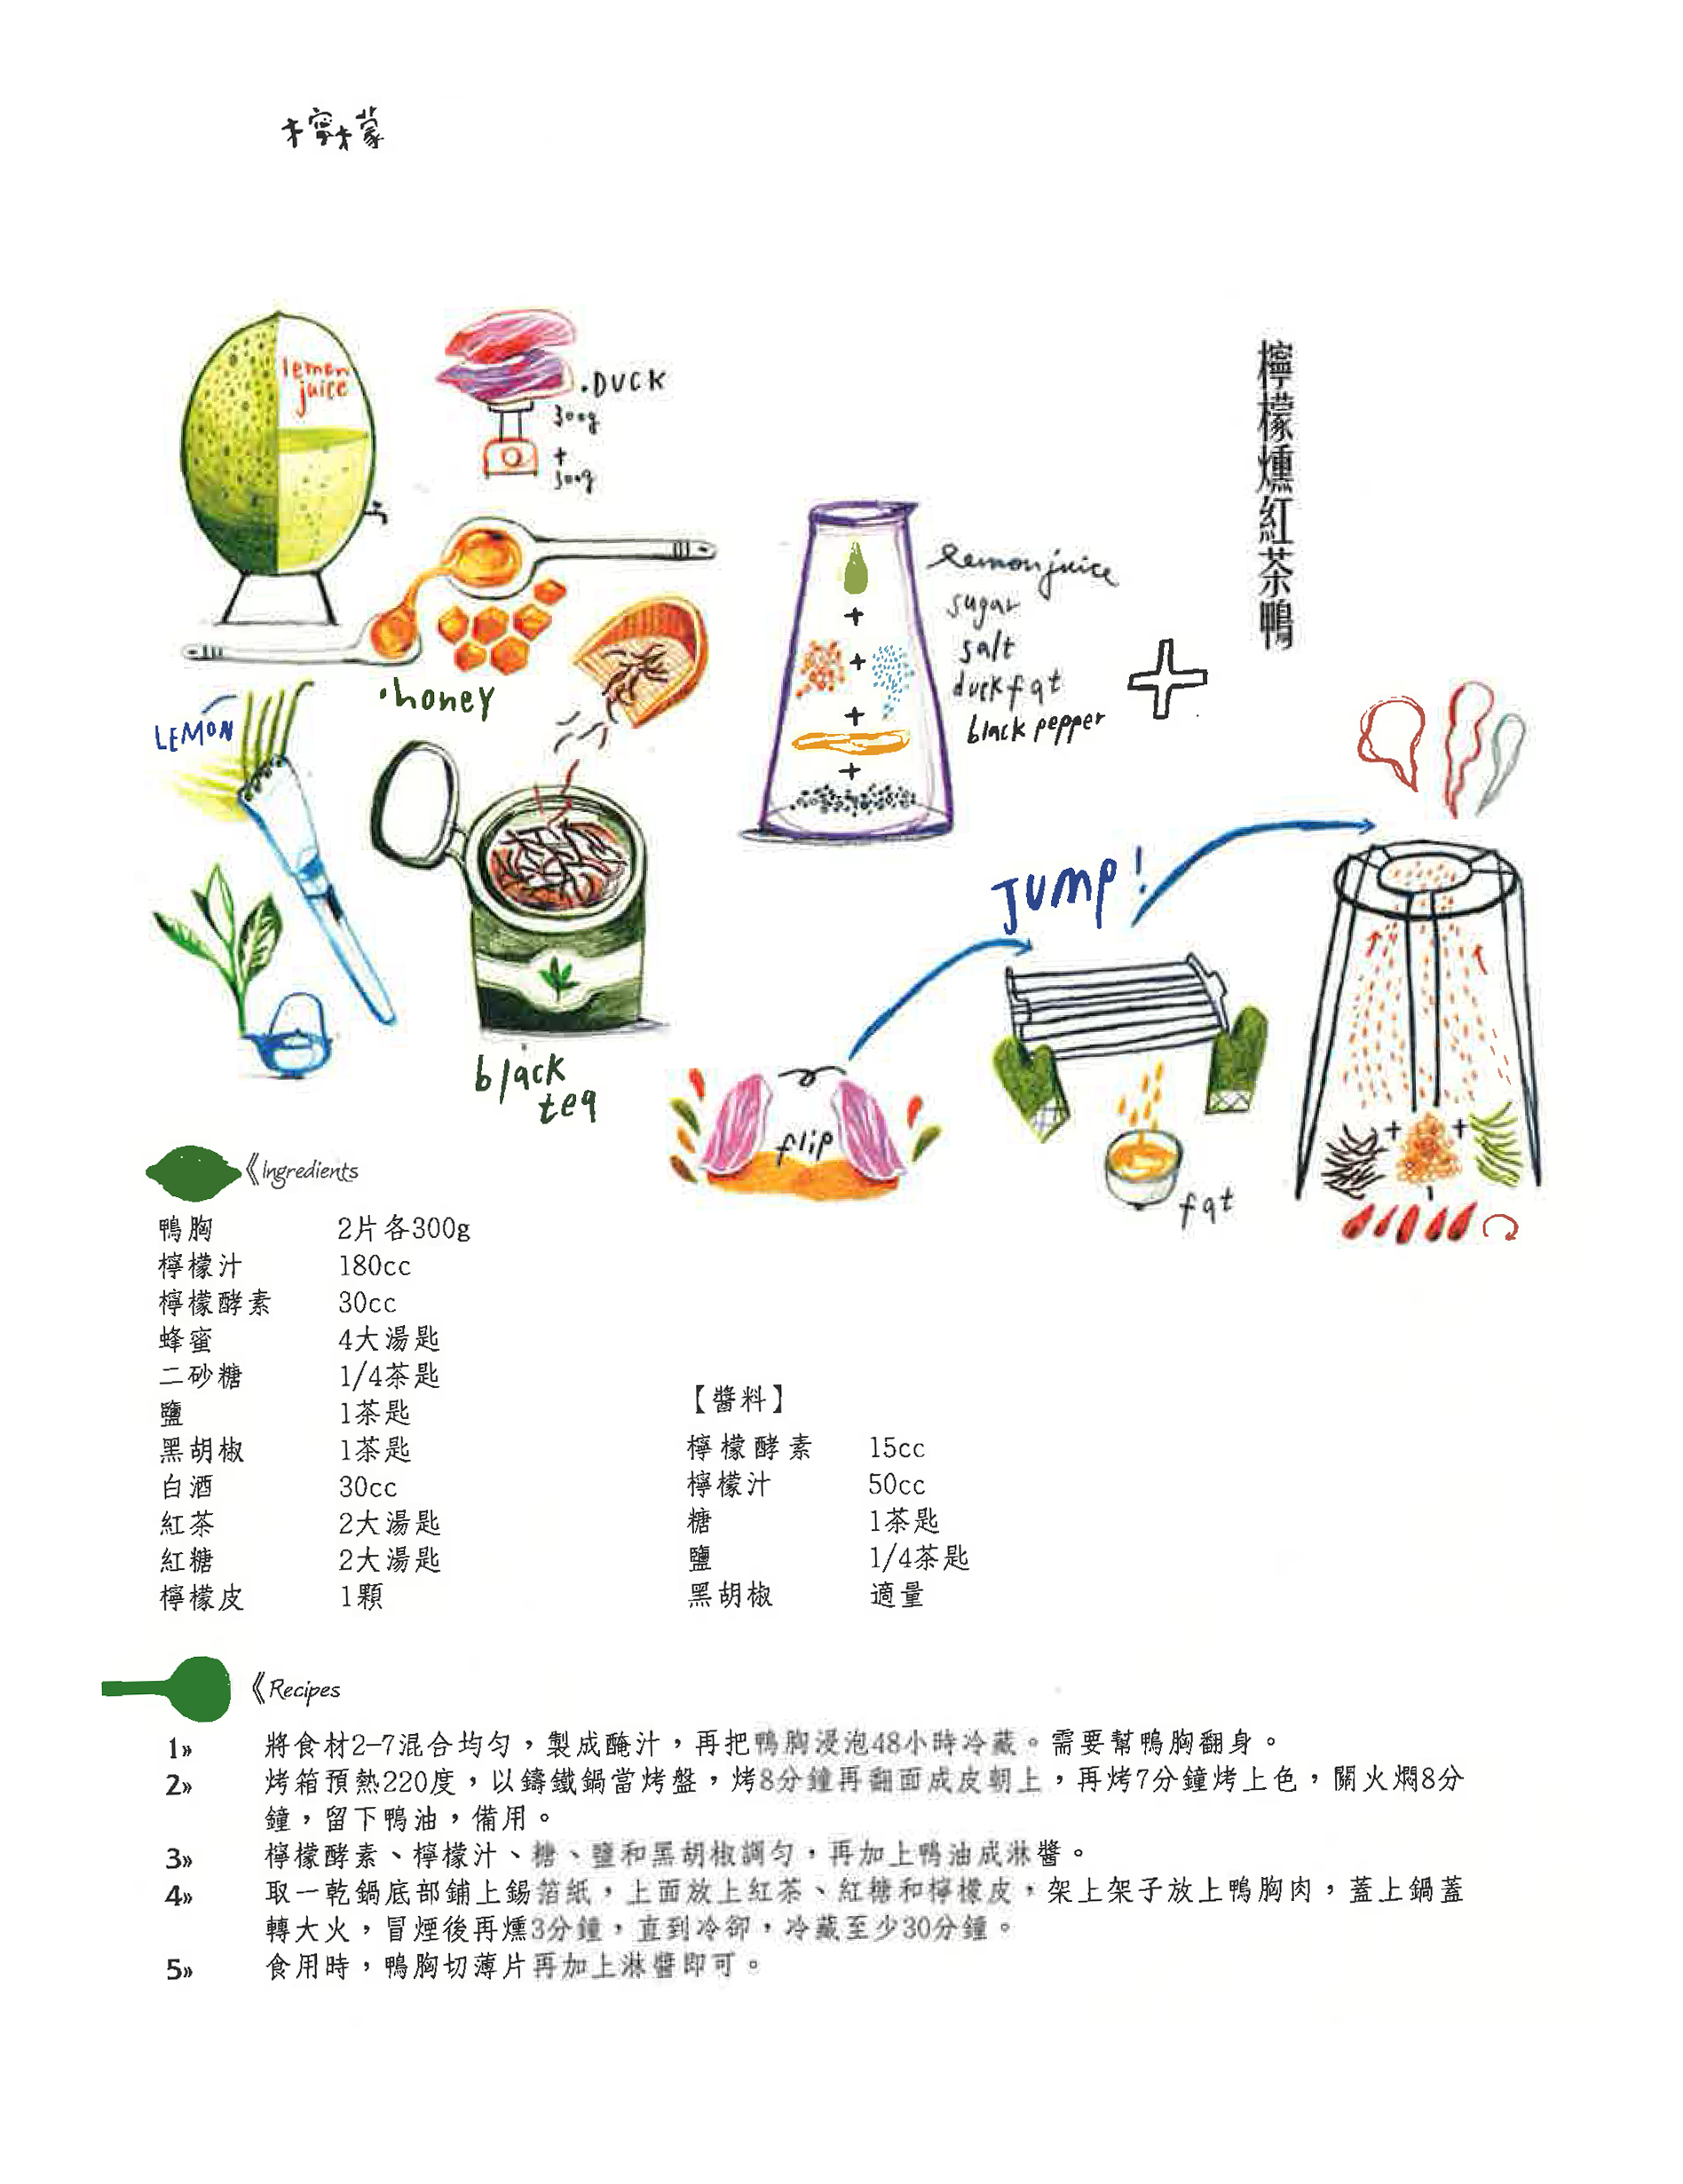 檸檬
檸檬燻紅茶鴨
lemon
juice
.DUCK
300g
+
300g
•honey
LEMON
black
tea
lemon juice
sugar
salt
duck fat
black pepper
+
+
+
+
JUMP!
flip
fat
+ +
《Ingredients
鴨胸 2片各300g
檸檬汁 180cc
檸檬酵素 30cc
蜂蜜 4大湯匙
二砂糖 1/4茶匙
鹽 1茶匙
黑胡椒 1茶匙
白酒 30cc
紅茶 2大湯匙
紅糖 2大湯匙
檸檬皮 1顆
【醬料】
檸檬酵素 15cc
檸檬汁 50cc
糖 1茶匙
鹽 1/4茶匙
黑胡椒 適量
《Recipes
1» 將食材2-7混合均勻，製成醃汁，再把鴨胸浸泡48小時冷藏。需要幫鴨胸翻身。
2» 烤箱預熱220度，以鑄鐵鍋當烤盤，烤8分鐘再翻面成皮朝上，再烤7分鐘烤上色，關火燜8分
鐘，留下鴨油，備用。
3» 檸檬酵素、檸檬汁、糖、鹽和黑胡椒調勻，再加上鴨油成淋醬。
4» 取一乾鍋底部鋪上錫箔紙，上面放上紅茶、紅糖和檸檬皮，架上架子放上鴨胸肉，蓋上鍋蓋
轉大火，冒煙後再燻3分鐘，直到冷卻，冷藏至少30分鐘。
5» 食用時，鴨胸切薄片再加上淋醬即可。